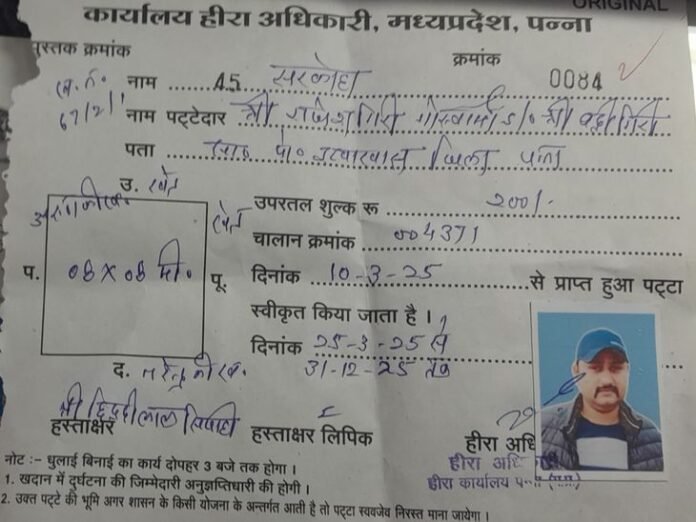 ORIGINAL
कार्यालय हीरा अधिकारी, मध्यप्रदेश, पन्ना
पुस्तक क्रमांक
क्रमांक
नाम 45 सरकोहा 0084
67/2/1
नाम पट्टेदार श्री राजेश गिरी गोस्वामी S/० श्री बद्री गिरी
पता पो० जिला पन्ना
उ. खेत
खेत
प. ०8 X ०8 मी० पू.
द.
उपरतल शुल्क रू 200/-
चालान क्रमांक 004371
दिनांक 10-3-25 से प्राप्त हुआ पट्टा
स्वीकृत किया जाता है ।
दिनांक 25-3-25 से
31-12-25 तक
श्री
हस्ताक्षर हस्ताक्षर लिपिक हीरा अधि
हीरा अधि
हीरा कार्यालय
नोट :- धुलाई बिनाई का कार्य दोपहर 3 बजे तक होगा ।
1. खदान में दुर्घटना की जिम्मेदारी अनुज्ञप्तिधारी की होगी ।
2. उक्त पट्टे की भूमि अगर शासन के किसी योजना के अन्तर्गत आती है तो पट्टा स्वयमेव निरस्त माना जायेगा ।